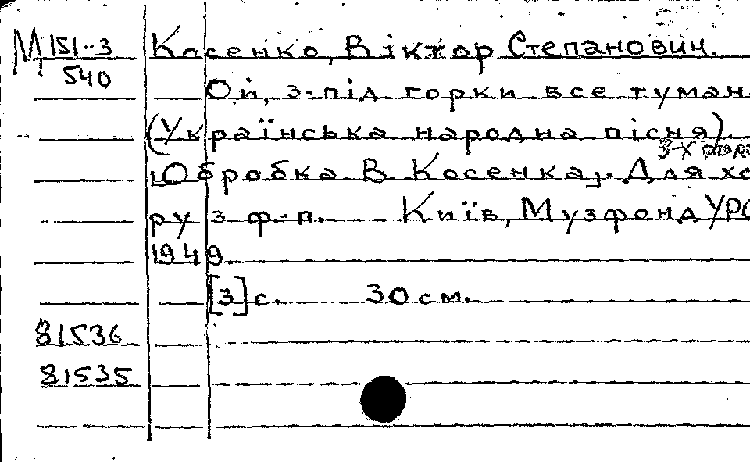 М 151-3 Косенко, Віктор Степанович.
540
Ой, з-під горки все туман
(Українська народна пісня).
3-х
[Обробка В. Косенка]. Для хо
ру з ф.-п. Київ, Музфонд УРС
1949.
[3] с. 30 см.
81536
81535